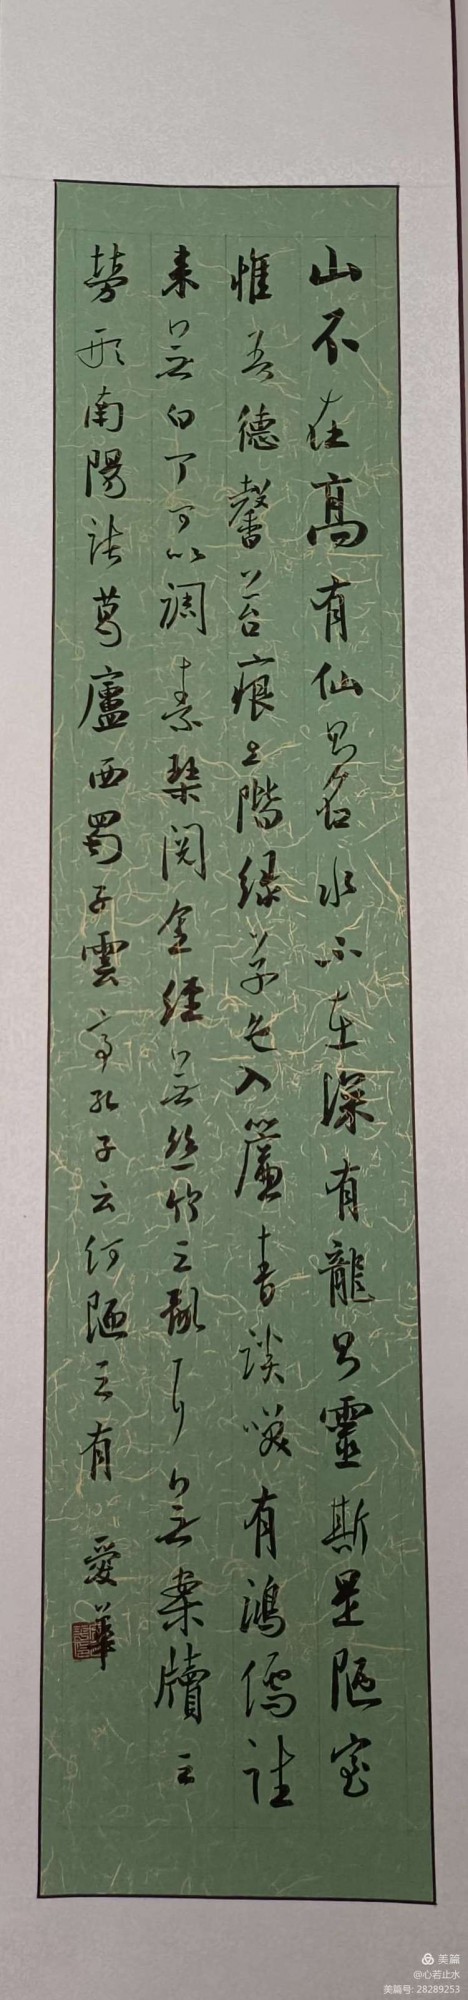 山不在高有仙則名水不在深有龍則靈斯是陋室
惟吾德馨苔痕上階緑草色入簾青談咲有鴻儒往
来無白丁可以調素琴閲金經無絲竹之亂耳無案牘之
勞形南陽諸葛廬西蜀子雲亭孔子云何陋之有 愛華
美篇
@心若止水
美篇号: 28289253